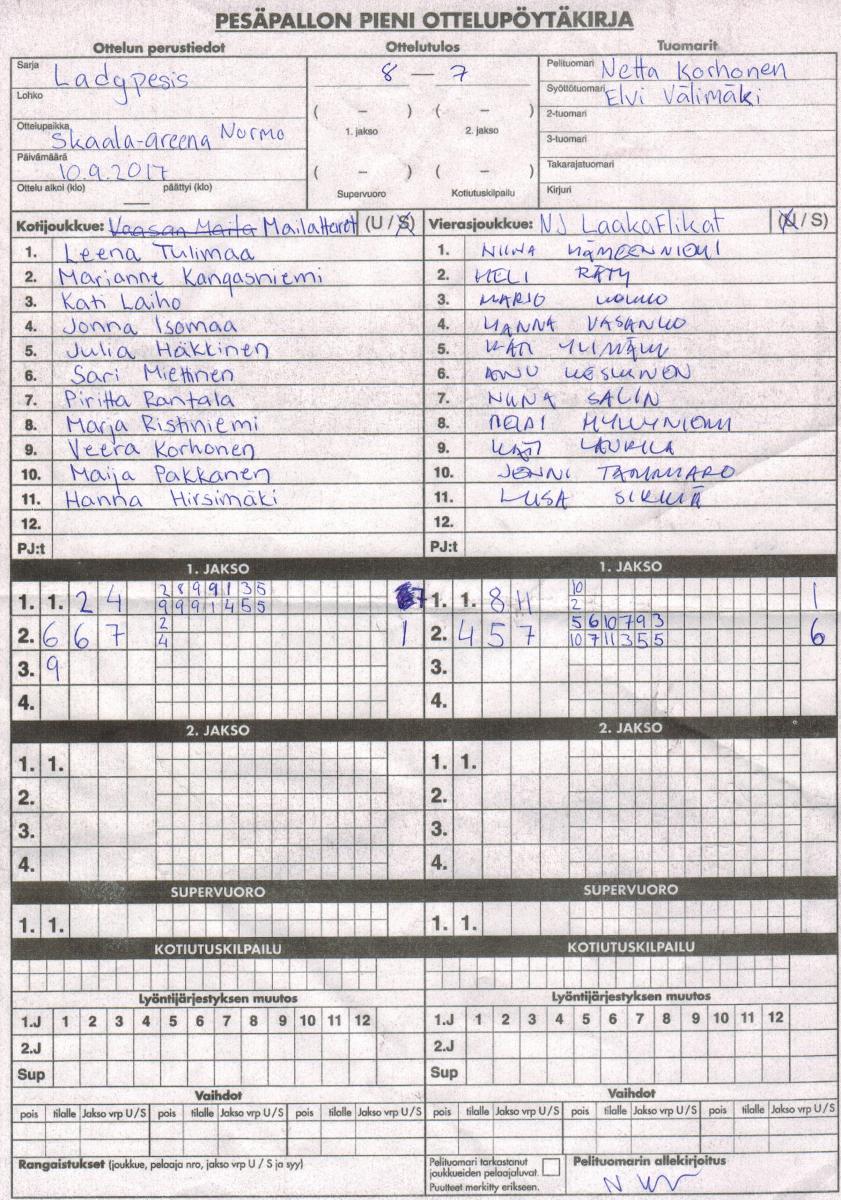 PESÄPALLON PIENI OTTELUPÖYTÄKIRJA
Ottelun perustiedot
Sarja Ladypesis
Lohko
Ottelupaikka Skaala-areena Nurmo
Päivämäärä 10.9.2017
Ottelu alkoi (klo) — päättyi (klo)
Ottelutulos
8 — 7
( – ) ( – )
1. jakso 2. jakso
( – ) ( – )
Supervuoro Kotiutuskilpailu
Tuomarit
Pelituomari Netta Korhonen
Syöttötuomari Elvi Välimäki
2-tuomari
3-tuomari
Takarajatuomari
Kirjuri
Kotijoukkue: Vaasan Maila Mailattaret (U / S)
1. Leena Tulimaa
2. Marianne Kangasniemi
3. Kati Laiho
4. Jonna Isomaa
5. Julia Häkkinen
6. Sari Miettinen
7. Piritta Rantala
8. Marja Ristiniemi
9. Veera Korhonen
10. Maija Pakkanen
11. Hanna Hirsimäki
12.
PJ:t
Vierasjoukkue: NJ LaakaFlikat (U / S)
1. NIINA HÄMEENNIEMI
2. HELI RÄTY
3. MARJO
4. HANNA VASANKO
5. KATI YLIMÄKI
6. ANU KESKINEN
7. NIINA SALIN
8. HEIDI MYLLYNIEMI
9. KATI LAURILA
10. JENNI TAMMARO
11. LIISA
12.
PJ:t
1. JAKSO
1. 1. 2 4 2 8 9 9 1 3 5 7
9 9 9 1 4 5 5
2. 6 6 7 2 1
4
3. 9
4.
1. JAKSO
1. 1. 8 11 10 1
2
2. 4 5 7 5 6 10 7 9 3 6
10 7 11 3 5 5
3.
4.
2. JAKSO
1. 1.
2.
3.
4.
2. JAKSO
1. 1.
2.
3.
4.
SUPERVUORO
1. 1.
SUPERVUORO
1. 1.
KOTIUTUSKILPAILU
KOTIUTUSKILPAILU
Lyöntijärjestyksen muutos
1.J 1 2 3 4 5 6 7 8 9 10 11 12
2.J
Sup
Lyöntijärjestyksen muutos
1.J 1 2 3 4 5 6 7 8 9 10 11 12
2.J
Sup
Vaihdot
pois tilalle Jakso vrp U/S pois tilalle Jakso vrp U/S pois tilalle Jakso vrp U/S
Vaihdot
pois tilalle Jakso vrp U/S pois tilalle Jakso vrp U/S pois tilalle Jakso vrp U/S
Rangaistukset (joukkue, pelaaja nro, jakso vrp U / S ja syy)
Pelituomari tarkastanut
joukkueiden pelaajaluvat.
Puutteet merkitty erikseen.
Pelituomarin allekirjoitus